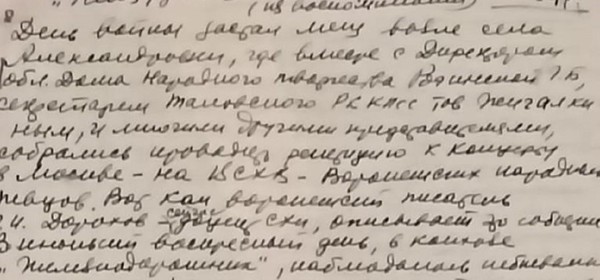 (из воспоминаний)
День войны застал меня возле села
Александровки, где вместе с Директором
обл. Дома Народного творчества
секретарем Таловского РК КПСС тов Жигалки
ным, и многими другими представителями,
собрались проводить репетицию к концерту
в Москве - на ВСХВ - Воронежских народных
певцов. Вот как воронежский писатель
Дорохов описывает эти события
В июньский воскресный день, в клубе
"Железнодорожник", наблюдалось